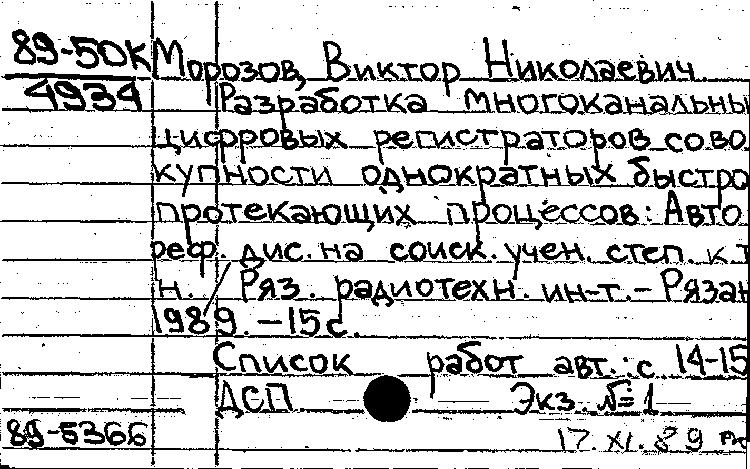 89-50К Морозов, Виктор Николаевич
4934 Разработка многоканальны
цифровых регистраторов сово
купности однократных быстро
протекающих процессов: Авто
реф. дис. на соиск. учен. степ. к.т
н. / Ряз. радиотехн. ин-т. - Рязан
1989. - 15 с.
Список работ авт.: с 14-15
ДСП Экз. №1
89-5366 17.XI.89